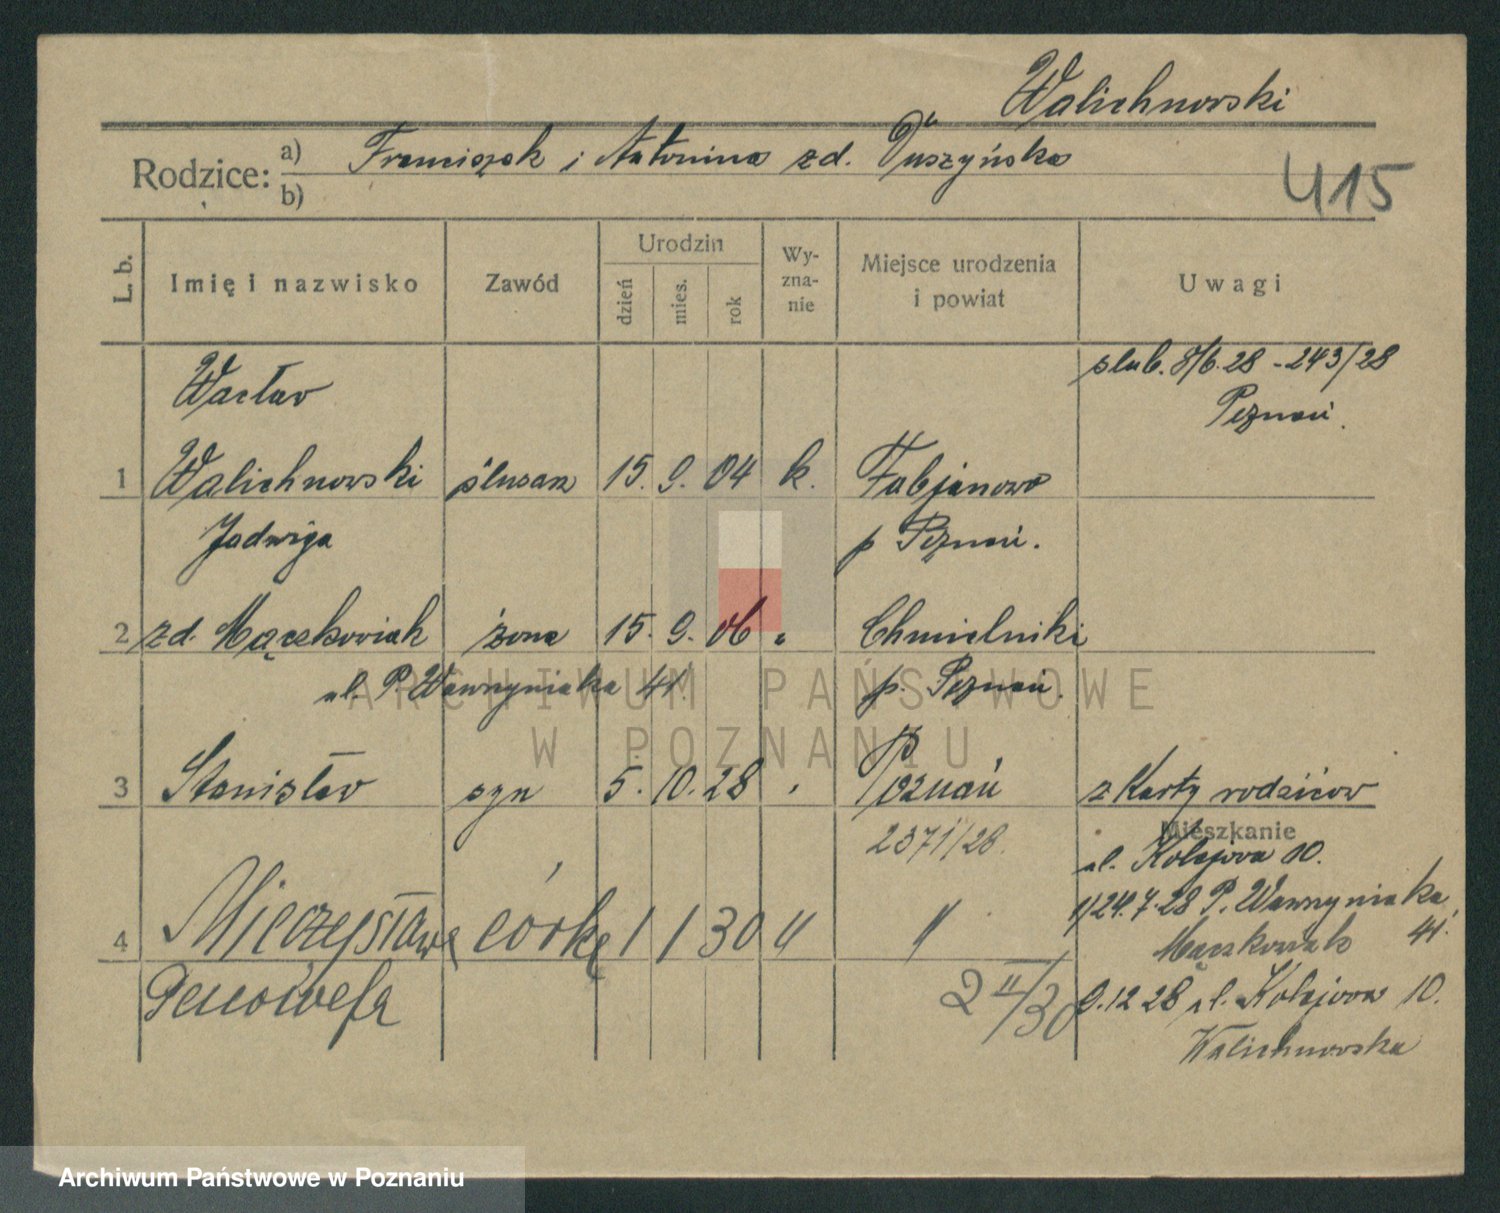 Walichnowski
Rodzice: a) Franciszek i Antonina zd. Duszyńska
b)
415
L. b. Imię i nazwisko Zawód Urodzin dzień mies. rok Wy-zna-nie Miejsce urodzenia i powiat Uwagi
slub. 8/6.28 - 243/28
Wacław Poznań.
1 Walichnowski ślusarz 15. 9. 04 k. Fabjanowo
Jadwiga p Poznań.
2 zd. Mączkowiak żona 15. 9. 06 " Chmielniki
ul. P. Wawrzyniaka 41. p. Poznań.
3 Stanisław syn 5. 10. 28 " Poznań z Karty rodziców
2371/28. Mieszkanie
ul. Kolejowa 10.
1/24.7.28 P. Wawrzyniaka
4 Mieczysława córka 1 1 30 " " Mączkowiak 41.
Genowefa 2 II/30 9.12 28 ul. Kolejowa 10.
Walichnowska
ARCHIWUM PAŃSTWOWE
W POZNANIU
Archiwum Państwowe w Poznaniu